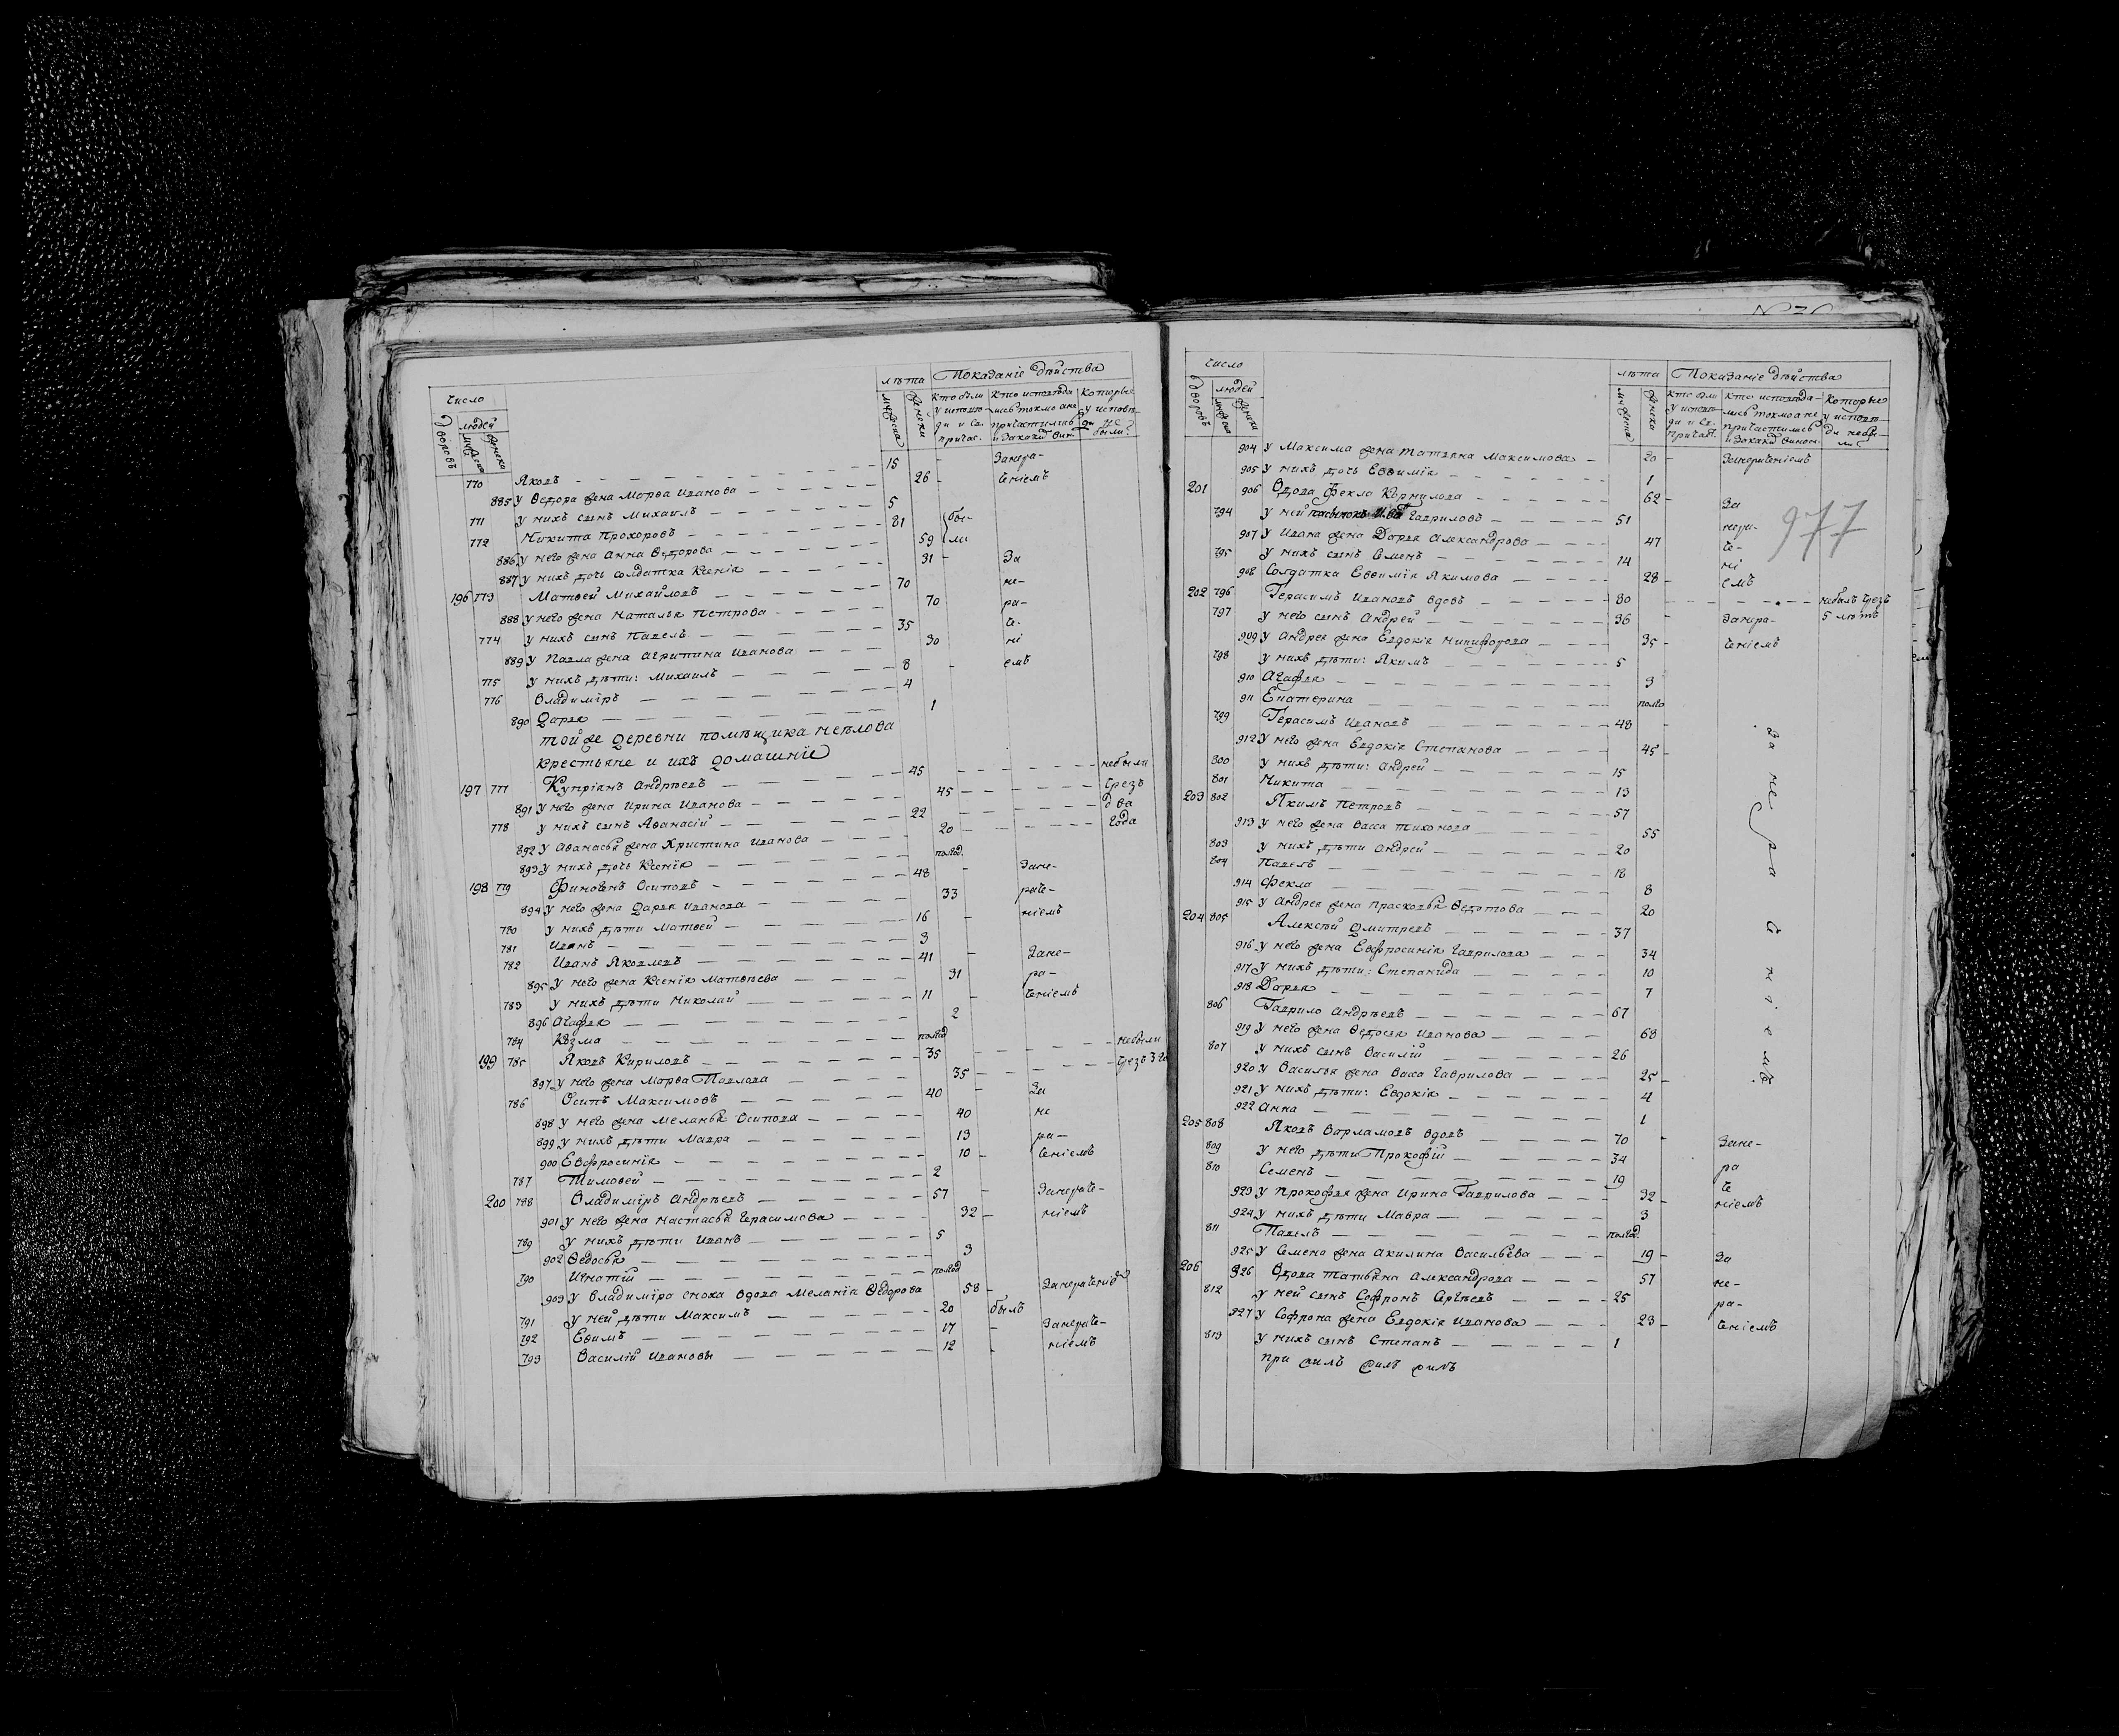 число
лѣта Показаніе дѣйства
дворовъ
людей
мужеска
женска
мужеска
женска
кто были у исповѣди и св. причас.
кто исповѣдались токмо а не причастились и за какой вин.
которые у исповѣди не были
770 Яковъ 15 Занера-
885 у Ѳедора жена Марѳа Иванова 26 ченіемъ
771 у нихъ сынъ Михаилъ 5
772 Никита Прохоровъ 81 бы-
886 у него жена Анна Ѳедорова 59 ли
887 у нихъ дочь солдатка Ксенія 31 За
196 773 Матвей Михайловъ 70 не-
888 у него жена Наталья Петрова 70 ра-
774 у нихъ сынъ Павелъ 35 че-
889 у Павла жена Агрипина Иванова 30 ні
775 у нихъ дѣти: Михаилъ 8 емъ
776 Владиміръ 4
890 Дарья 1
той же деревни помѣщика Неѣлова
крестьяне и ихъ домашніе
197 777 Купріянъ Андрѣевъ 45 небыли
891 у него жена Ирина Иванова 45 чрезъ
778 у нихъ сынъ Аѳанасій 22 два
892 у Аѳанасья жена Христина Иванова 20 года
893 у нихъ дочь Ксенія полгод.
198 779 Финогенъ Осиповъ 48 Зане-
894 у него жена Дарья Иванова 33 раче-
780 у нихъ дѣти Матвей 16 ніемъ
781 Иванъ 3
782 Иванъ Яковлевъ 41 Зане-
895 у него жена Ксенія Матвѣева 31 ра-
783 у нихъ дѣти Николай 11 ченіемъ
896 Агафья 2
784 Козма полгод
199 785 Яковъ Кириловъ 35 небыли
897 у него жена Марѳа Павлова 35 чрезъ 3 го
786 Осипъ Максимовъ 40 За
898 у него жена Меланья Осипова 40 не
899 у нихъ дѣти Мавра 13 ра-
900 Евфросинія 10 ченіемъ
787 Тимовей 2
200 788 Владиміръ Андрѣевъ 57 Занераче-
901 у него жена Настасья Герасимова 32 ніемъ
789 у нихъ дѣти Иванъ 5
902 Ѳедосья 3
790 Игнатій полгод
903 у Владиміра сноха вдова Меланія Ѳедорова 58 Занераченіе
791 у ней дѣти Максимъ 20 былъ
792 Ефимъ 17 Занераче-
793 Василій Ивановы 12 ніемъ
число
лѣта Показаніе дѣйства
дворовъ
людей
мужеска
женска
мужеска
женска
кто были у исповѣди и св. причас.
кто исповѣда-лись токмо а не причастились и за какой винои
которые у исповѣди небыли
904 у Максима жена Татьяна Максимова 20 Занераченіемъ
905 у нихъ дочь Евѳимія 1
201 906 Вдова Фекла Корнилова 62 За
794 у ней Гавриловъ 51 нера-
907 у Ивана жена Дарья Александрова 47 че-
795 у нихъ сынъ Семенъ 14 ні
908 Солдатка Евѳимія Якимова 28 емъ
977
202 796 Герасимъ Ивановъ вдовъ 80 небылъ чрезъ
797 у него сынъ Андрей 36 Занера- 5 лѣтъ
909 у Андрея жена Евдокія Никифорова 35 ченіемъ
798 у нихъ дѣти: Якимъ 5
910 Агафья 3
911 Екатерина полго
799 Герасимъ Ивановъ 48
912 у него жена Евдокія Степанова 45
800 у нихъ дѣти: Андрей 15
801 Никита 13
203 802 Якимъ Петровъ 57
913 у него жена Васса Тихонова 55
803 у нихъ дѣти Андрей 20
804 Павелъ 18
914 Фекла 8
915 у Андрея жена Прасковья Ѳедотова 20
204 805 Алексѣй Дмитревъ 37
916 у него жена Евфросинія Гаврилова 34
917 у нихъ дѣти: Степанида 10
918 Дарья 7
806 Гаврило Андрѣевъ 67
919 у него жена Ѳедосья Иванова 68
807 у нихъ сынъ Василій 26
920 у Василья жена Васа Гаврилова 25
921 у нихъ дѣти: Евдокія 4
922 Анна 1
За не ра че ні емъ
205 808 Яковъ Варламовъ вдовъ 70 Зане-
809 у него дѣти Прокофій 34 ра
810 Семенъ 19 че
923 у Прокофья жена Ирина Гаврилова 32 ніемъ
924 у нихъ дѣти Мавра 3
811 Павелъ полгод
925 у Семена жена Акилина Васильева 19 За
206 926 Вдова Татьяна Александрова 57 не-
812 у ней сынъ Софронъ Сергѣевъ 25 ра-
927 у Софрона жена Евдокія Иванова 23 ченіемъ
813 у нихъ сынъ Степанъ 1
при